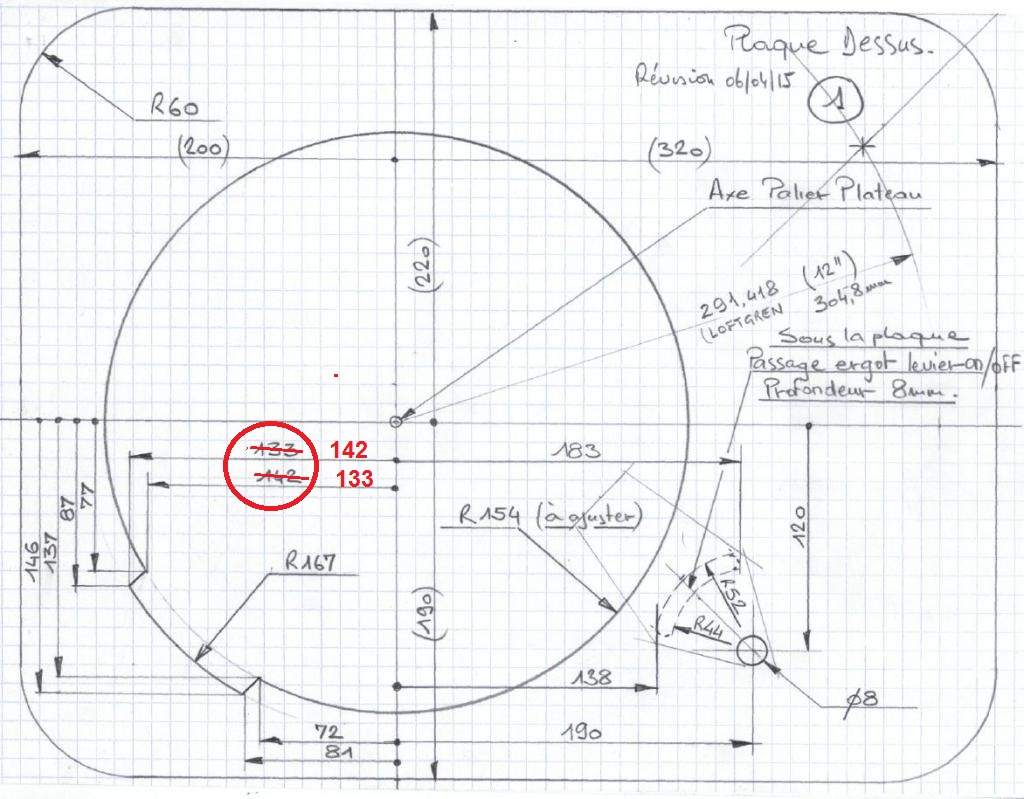 Plaque Dessus.
Révision 06/04/15
1
R60
(200)
(320)
Axe Palier Plateau
(220)
291,418 (12")
(LOFTGREN 304,8mm
Sous la plaque
Passage ergot levier on/OFF
Profondeur 8mm.
133 142
142 133
183
77
87
137
146
R154 (à ajuster)
120
R167
R52
R44
(190)
138
ø8
72
190
81